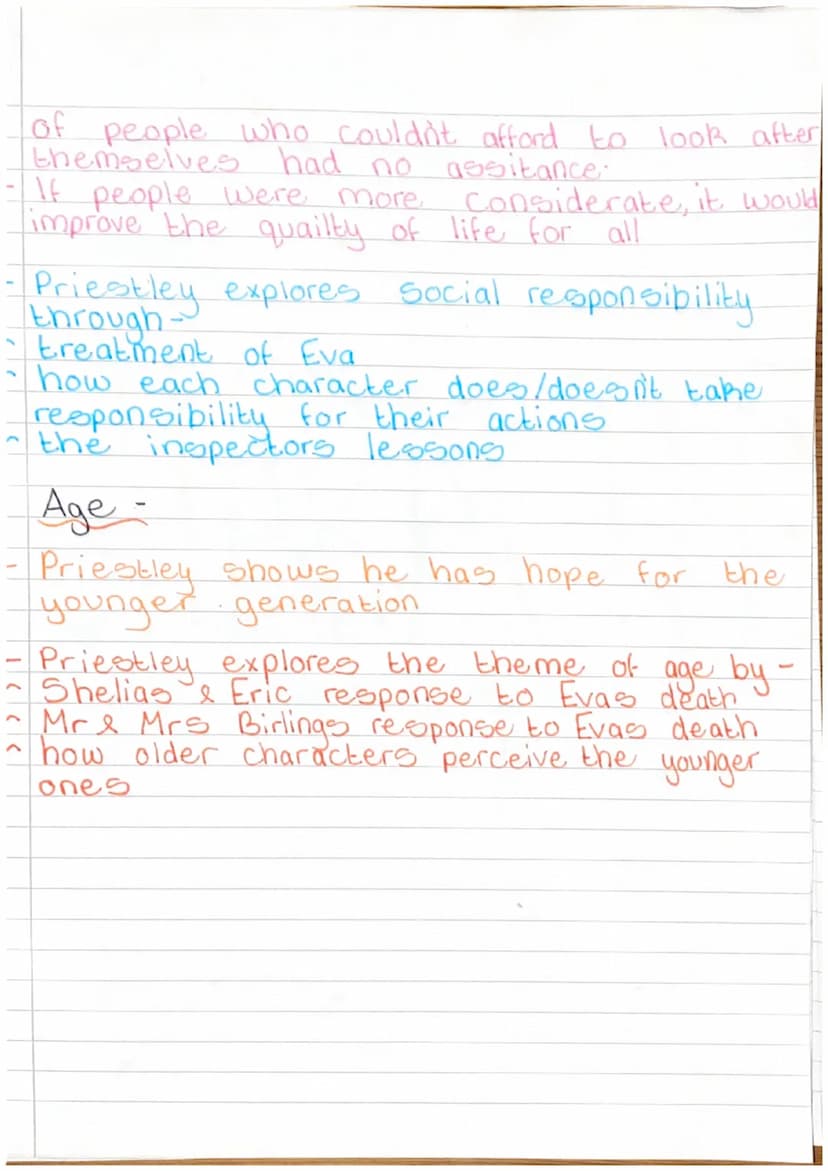 of people who couldn't afford to look after
themselves had no assitance.
- If people were more considerate, it would
improve the quailty of life for all
- Priestley explores social responsibility
through-
- treatment of Eva
- how each character does/doesn't take
responsibility for their actions
- the inspectors lessons
Age -
- Priestley shows he has hope for the
younger generation
- Priestley explores the theme of age by -
- Shelias & Eric response to Evas death
- Mr & Mrs Birlings response to Evas death
- how older characters perceive the younger
ones